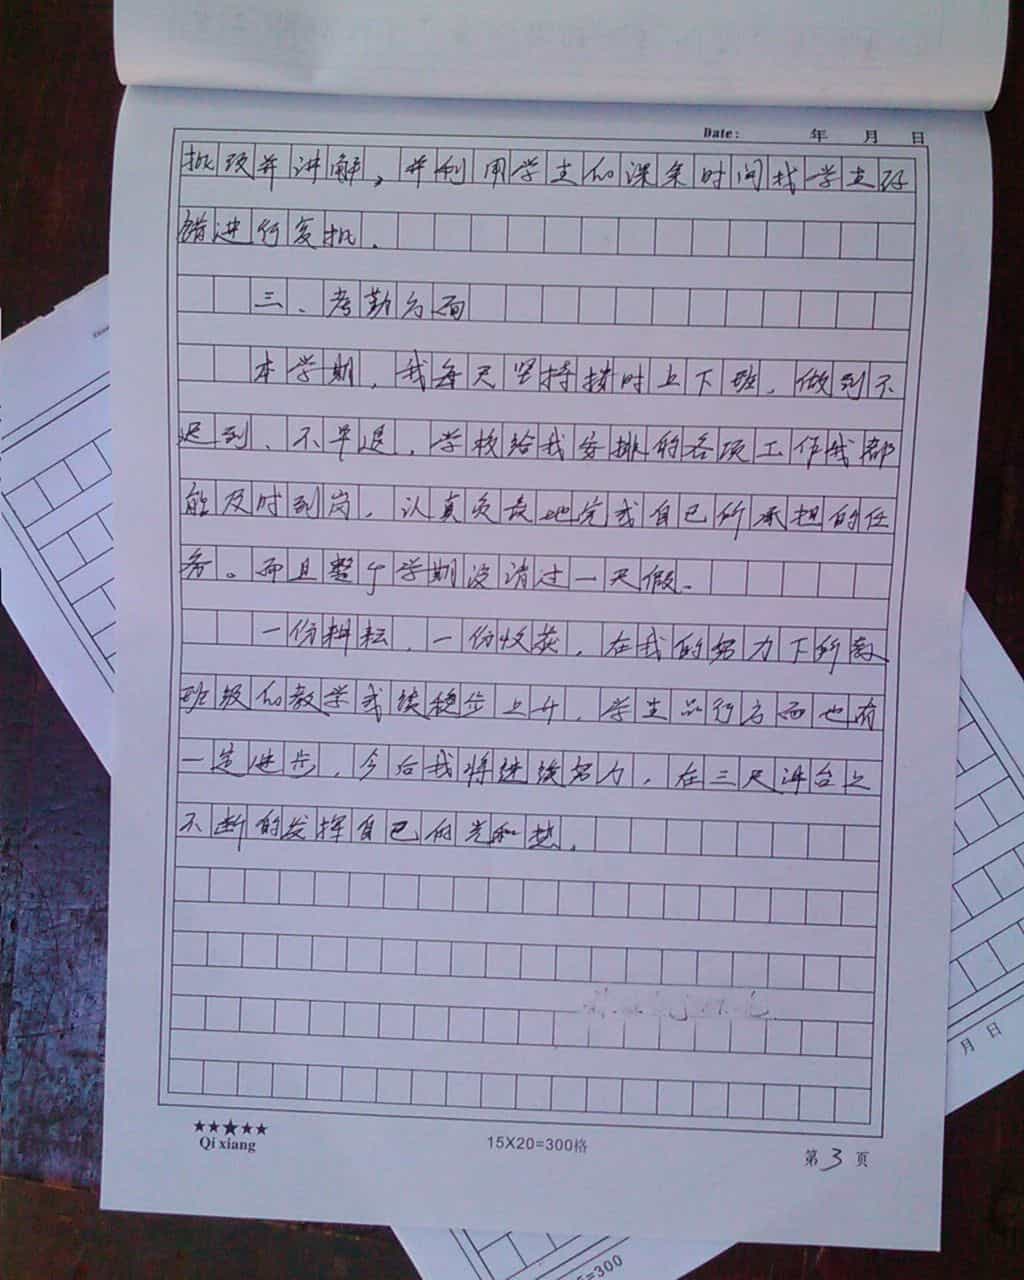 Date: 年 月 日
批改并讲解,并利用学生的课余时间找学生改
错进行复批.
三、考勤方面
本学期,我每天坚持按时上下班,做到不
迟到、不早退,学校给我安排的各项工作我都
能及时到岗,认真负责地完成自己所承担的任
务。而且整个学期没请过一天假.
一份耕耘,一份收获,在我的努力下所教
班级的教学成绩稳步上升,学生品行方面也有
一定进步,今后我将继续努力,在三尺讲台上
不断的发挥自己的光和热.
★★★★★
Qi xiang
15X20=300格
第 3 页
月 日
=300